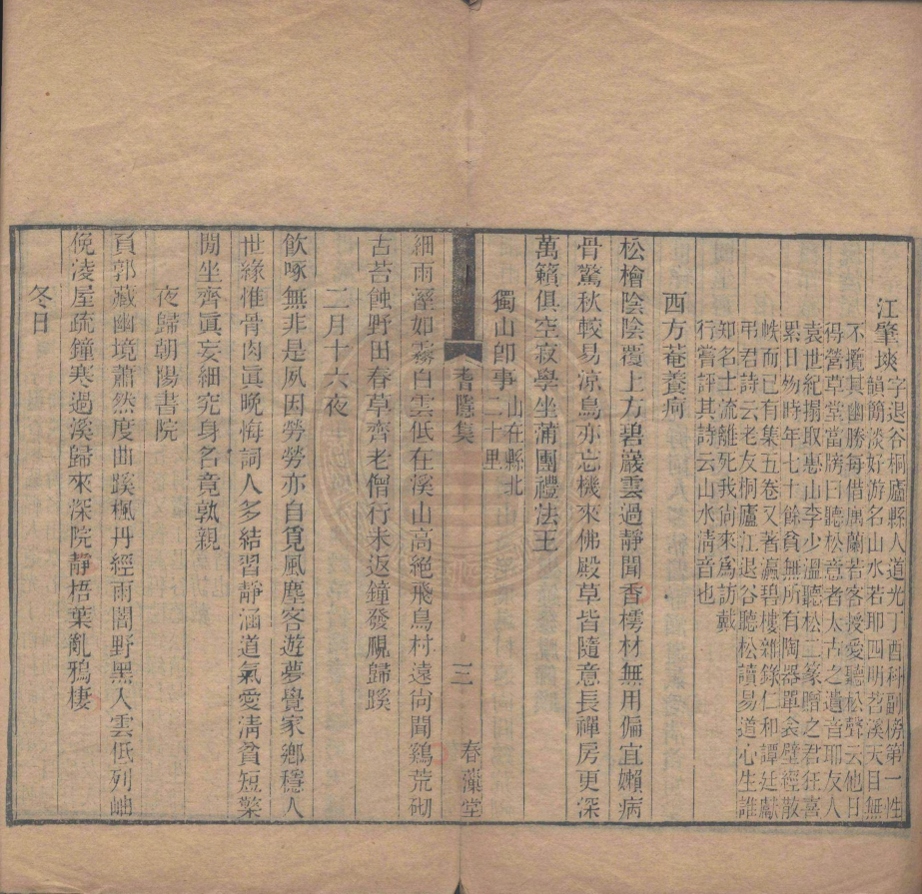 江肇塽字退谷桐廬縣人道光丁酉科副榜第一性
韻簡淡好游名山水若耶四明苕溪天目無
不攬其幽勝每借廡蘭若客授愛聽松聲云他日
得營草堂當牓曰聽松意者太古之遺音耶友人
袁世紀搨取惠山李少溫聽松二篆贈之君狂喜
累日物時年七十餘貧無所有陶器單衾壁經散
帙而已有集五卷又著瀛碧樓雜錄仁和譚廷獻
弔君詩云老友桐廬江退谷聽松讀易道心生誰
知名士流離死我尙來為訪戴
行嘗評其詩云山水淸音也
西方菴養疴
松檜陰陰覆上方碧巖雲過靜聞香樗材無用偏宜嬾病
骨驚秋較易涼鳥亦忘機來佛殿草皆隨意長禪房更深
萬籟俱空寂學坐蒲團禮法王
獨山卽事山在縣北二十里
耆隱集
三
春藻堂
細雨溼如霧白雲低在溪山高絕飛鳥村遠尙聞鷄荒砌
古苔蝕野田春草齊老僧行未返鐘發覗歸蹊
二月十六夜
飲啄無非是夙因勞勞亦自覓風塵客遊夢覺家鄉穩人
世緣惟骨肉眞晚悔詞人多結習靜涵道氣愛淸貧短檠
閒坐齊眞妄細究身名竟孰親
夜歸朝陽書院
負郭藏幽境蕭然度曲蹊楓丹經雨闇野黑入雲低列岫
俛淩屋疏鐘寒過溪歸來深院靜梧葉亂鴉棲
冬日